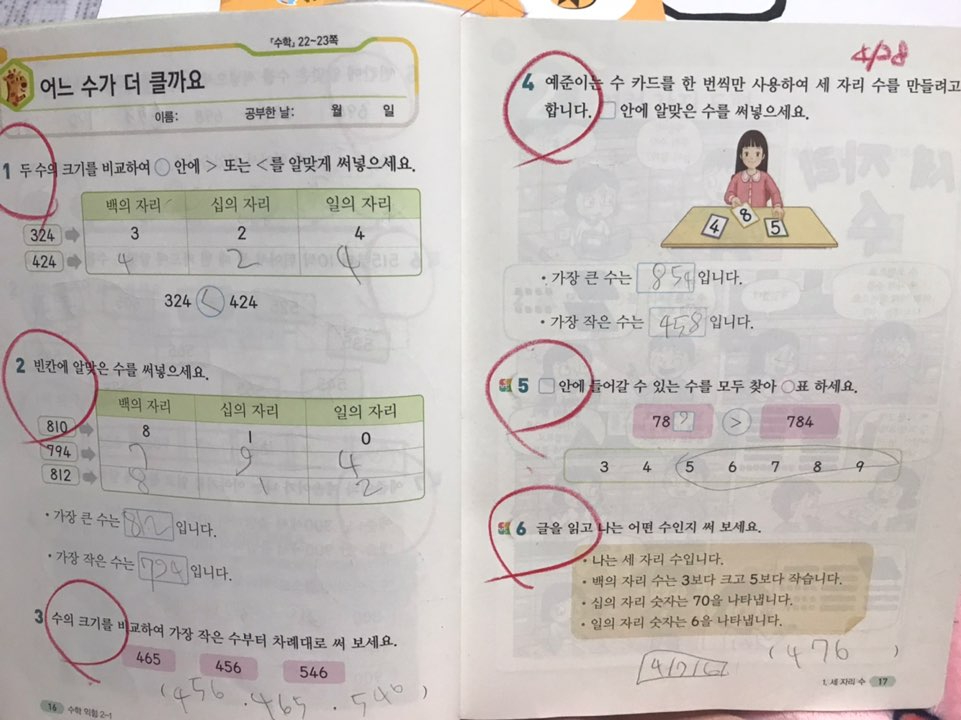 『수학』 22~23쪽
어느 수가 더 클까요
이름: 공부한 날: 월 일
1 두 수의 크기를 비교하여 ○ 안에 > 또는 <를 알맞게 써넣으세요.
백의 자리 십의 자리 일의 자리
324 3 2 4
424 4 2 4
324 < 424
2 빈칸에 알맞은 수를 써넣으세요.
백의 자리 십의 자리 일의 자리
810 8 1 0
794 7 9 4
812 8 1 2
• 가장 큰 수는 812 입니다.
• 가장 작은 수는 794 입니다.
3 수의 크기를 비교하여 가장 작은 수부터 차례대로 써 보세요.
465 456 546
(456 . 465 . 546)
16 수학 익힘 2-1
4/28
4 예준이는 수 카드를 한 번씩만 사용하여 세 자리 수를 만들려고
합니다. □ 안에 알맞은 수를 써넣으세요.
4 8 5
• 가장 큰 수는 854 입니다.
• 가장 작은 수는 458 입니다.
5 □ 안에 들어갈 수 있는 수를 모두 찾아 ○표 하세요.
78 9 > 784
3 4 5 6 7 8 9
6 글을 읽고 나는 어떤 수인지 써 보세요.
• 나는 세 자리 수입니다.
• 백의 자리 수는 3보다 크고 5보다 작습니다.
• 십의 자리 숫자는 70을 나타냅니다.
• 일의 자리 숫자는 6을 나타냅니다.
4/7/6 (476)
1. 세 자리 수 17